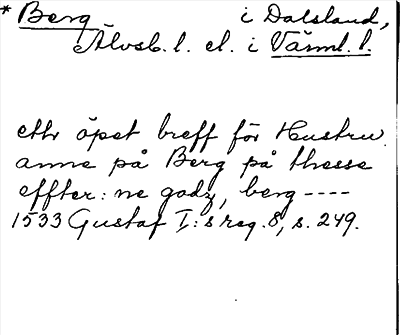 * Berg i Dalsland,
Älvsb. l. el. i Värml. l.
ettr öpet breff för Hustru
anne på Berg på thesse
effter: ne godz, berg ----
1533 Gustaf I:s reg. 8, s. 249.